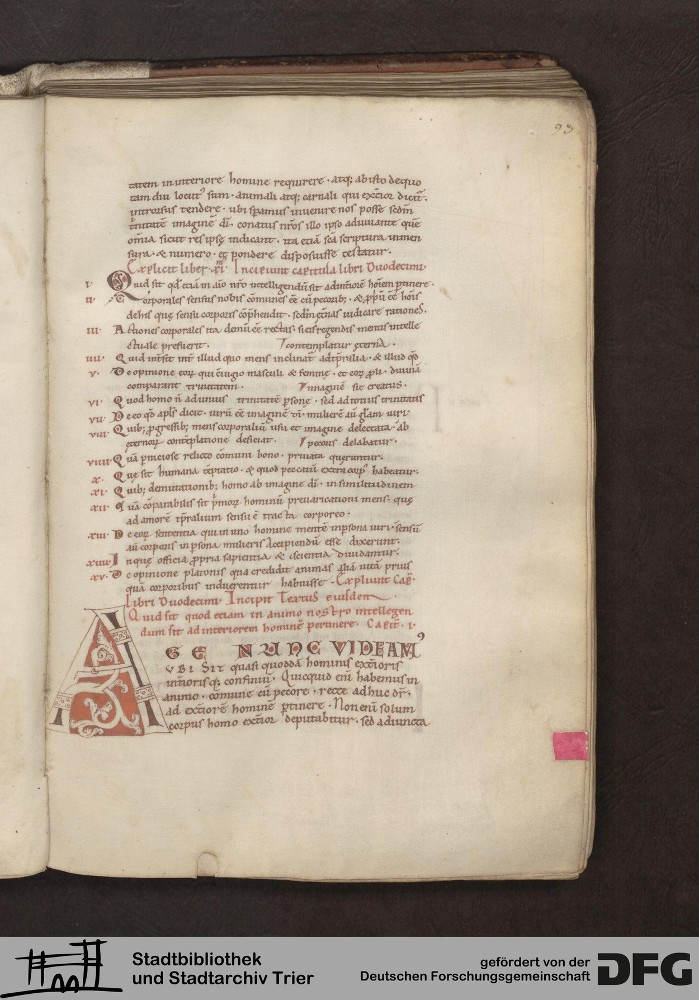 93
tatem in interiore homine requirere · atq; ab isto de quo
tam diu locut' sum · animali atq; carnali qui exterior dicit̄
introrsus tendere · ubi sp̄amus invenire nos posse sedm̄
trinitatē imaginē dī · conatus nr̄os illo ipso adiuvante quē
om̄ia sicut res ipsę indicant · ita etiā sc̄a scriptura in men
sura · & numero · et pondere disposuisse testatur ·
Explicit liber xī · Incipiunt capitula libri Duodecimi ·
i · Quid sit qđ etiā in aīo nr̄o intelligendū sit ad interiorē hoīem p̄tinere ·
ii · Corporales sensus nobis cōmunes eē cū pecorib; · & p̄priū eē hoīs
de his quę sensu corporis cōp̄hendit · sedm̄ ęternas iudicare rationes ·
iii · Actiones corporales ita demū eē rectas · si eis regendis mentis intelle
ctuale presuerit · / contemplatur ęterna ·
iiii · Quid int̄sit int̄ illud quo mens inclinat̄ ad tp̄ralia · & illud qđ
v · De opinione eorū qui c̄iugio masculi & feminę · et eorū p̄li · divinā
comparant trinitatem · / imaginē sit creatus ·
vi · Quod homo n̄ ad unius trinitatē p̄sonę · sed ad totius trinitatis
vii · De eo qđ apl̄s dicit · virū eē imaginē dī · mulierē aū gl̄am viri ·
viii · Quib; p̄gressib; mens corporaliū usu et imagine delectata · ab
eternorū contēplatione deficiat · / pecoris delabatur ·
viiii · Quā p̄niciose relicto cōmuni bono · privata querantur ·
x · Quę sit humana tēptatio · & quod peccatū extra corp' habeatur ·
xi · Quib; demutationib; homo ab imagine dī · in similitudinem
xii · Quā cōparabilis sit p̄morū hominū prevaricationi mens · quę
ad amorē tp̄ralium sensu ē tracta corporeo ·
xiii · De eorū sententia qui in uno homine mentē in p̄sona viri · sensū
aū corporis in p̄sona mulieris accipiendū esse dixerunt ·
xiiii · In quę officia p̄pria sapientia & scientia dividantur ·
xv · De opinione platonis qua credidit animas aliā vitā prius
quā corporibus induerentur habuisse · Expliunt Cap̄
Libri Duodecimi · Incipit Textus eiusdem ·
Quid sit quod etiam in animo nostro intellegen
dum sit ad interiorem hominē pertinere · Capit · i ·
AGE NUNC VIDEAM'
UBI SIT quasi quoddā hominis exterioris
interioris q; confiniū · Quicquid enī habemus in
animo · cōmune cū pecore · recte adhuc dr̄ ·
ad exteriorē hominē p̄tinere · Non enī solum
corpus homo exterior deputabitur · sed adiuncta
Stadtbibliothek
und Stadtarchiv Trier
gefördert von der
Deutschen Forschungsgemeinschaft
DFG